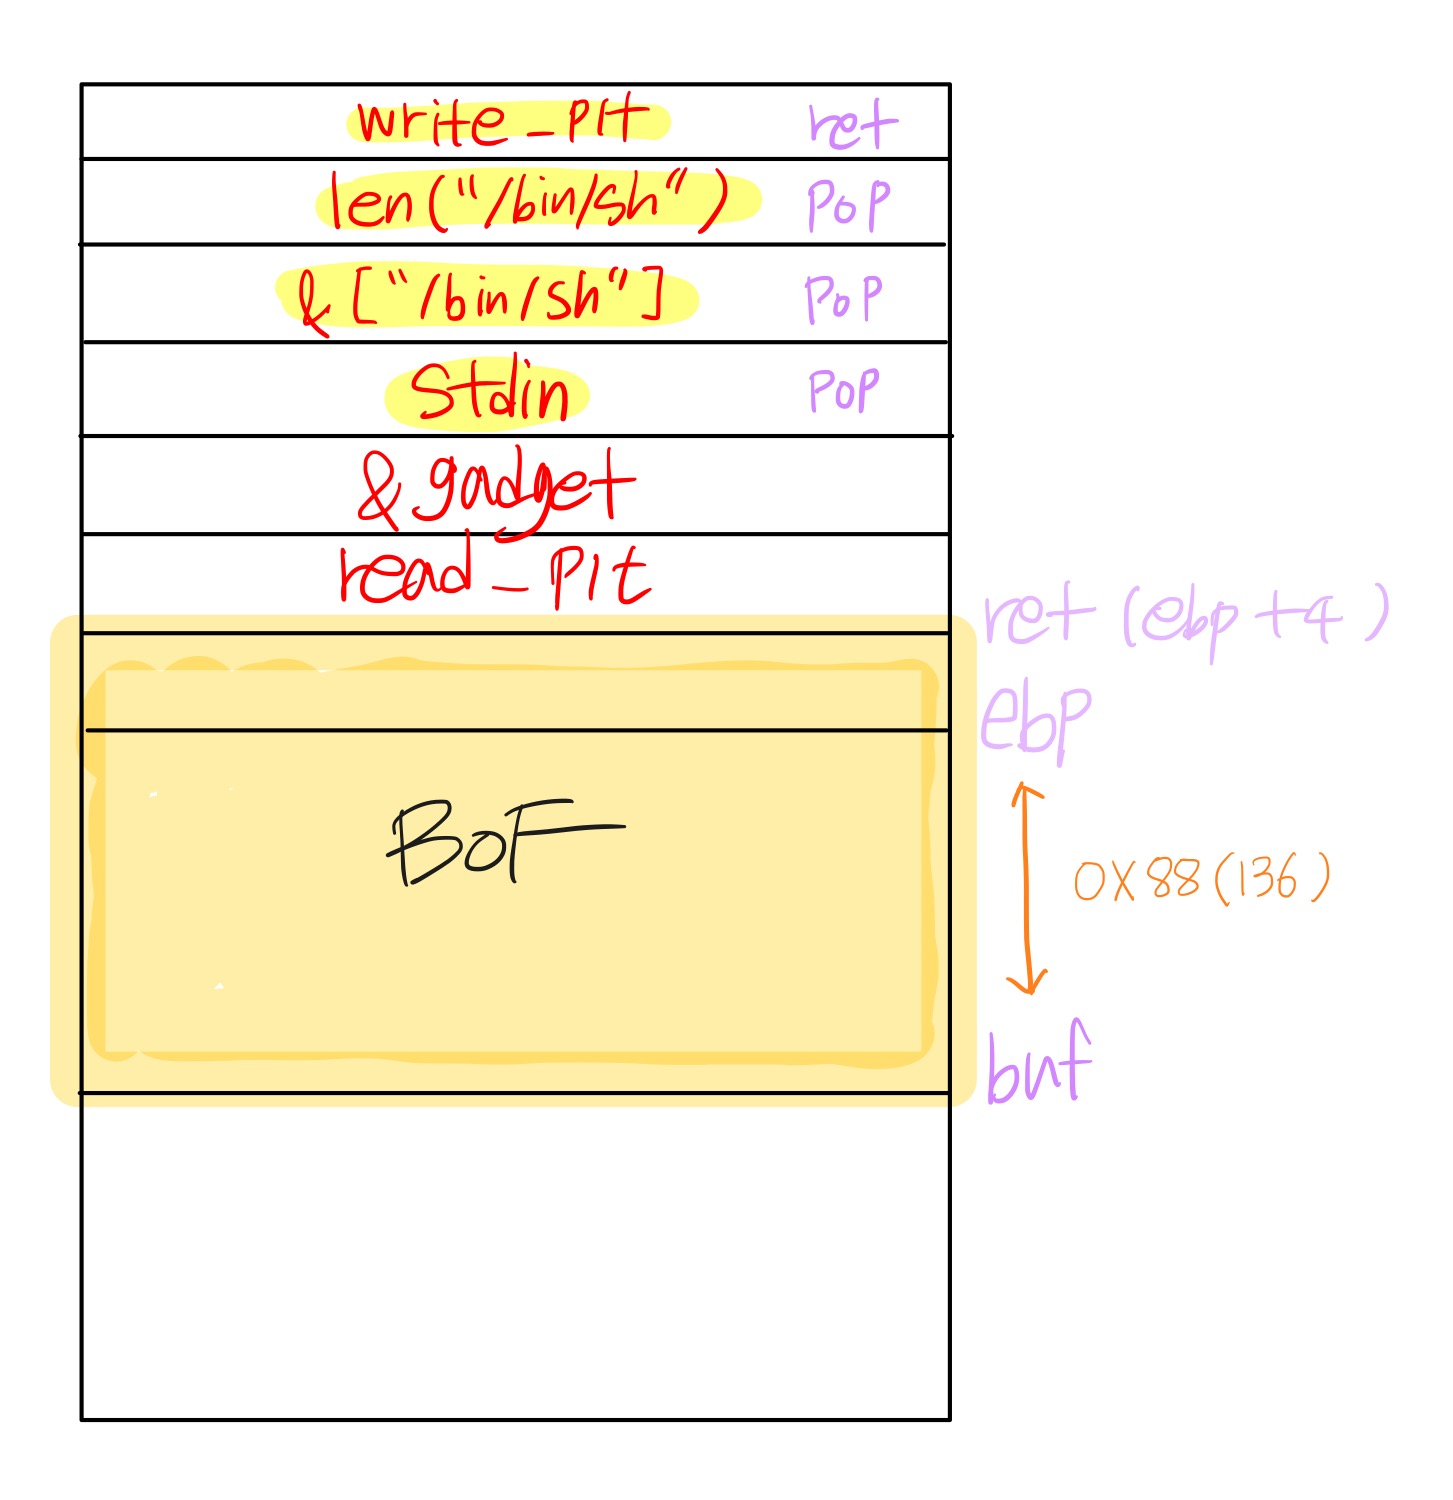 write_plt ret
len("/bin/sh") POP
&["/bin/sh"] POP
Stdin POP
&gadget
read_plt
ret (ebp+4)
ebp
BOF
0X88(136)
buf